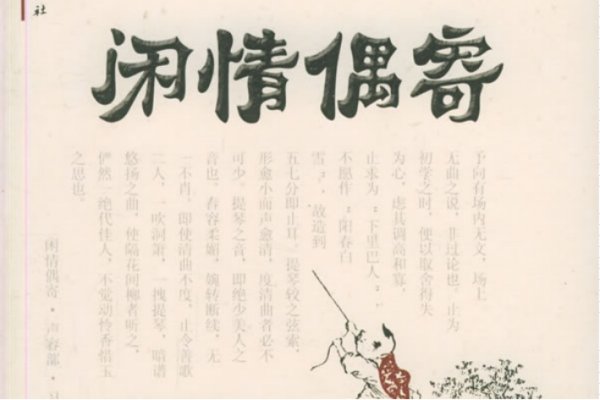 社
闲情偶寄
予向有场内无文，场上
无曲之说，非过论也。止为
初学之时，便以取舍得失
为心，虑其调高和寡，
止求为“下里巴人”，
不愿作“阳春白
雪”，故造到
五七分即止耳。提琴较之弦索，
形愈小而声愈清，度清曲者必不
可少。提琴之音，即绝少美人之
音也。春容柔媚，婉转断续，无
一不肖。即使清曲不度，止令善歌
二人，一吹洞箫，一拽提琴，暗谱
悠扬之曲，使隔花间柳者听之，
俨然一绝代佳人，不觉动怜香惜玉
之思也。
闲情偶寄·声容部·习